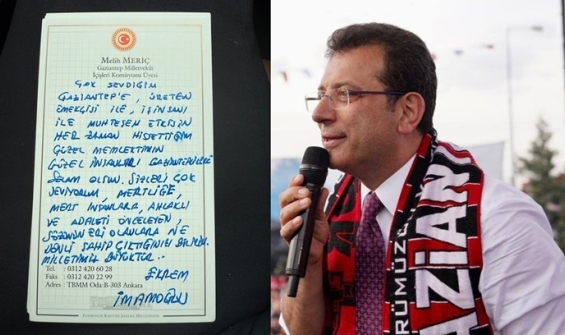 Melih MERİÇ
Gaziantep Milletvekili
İçişleri Komisyonu Üyesi
ÇOK SEVDİĞİM
GAZİANTEP'E, ÜRETEN
EMEKÇİSİ İLE, İŞ İNSANI
İLE MUHTEŞEM ETKİSİN
HER ZAMAN HİSETTİĞİM
GÜZEL MEMLEKETİMİN
GÜZEL İNSANLARI GAZİANTEPLİLERE
SELAM OLSUN. SİZLERİ ÇOK
SEVİYORUM, MERTLİĞE,
MERT İNSANLARA, AHLAKLI
VE ADALETİ ÖNCELEYEN,
SÖZÜNÜN ERİ OLANLARA NE
DENLİ SAHİP ÇIKTIĞINIZI BİLİRİM.
MİLLETİMİZ BÜYÜKTÜR..
EKREM
İMAMOĞLU
Tel : 0312 420 60 28
Faks : 0312 420 22 99
Adres : TBMM Oda:B-303 Ankara
URUMUZ
ZİAN